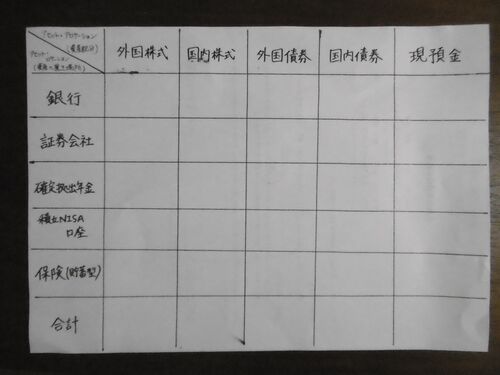 アセット・アロケーション
(資産配分)
アセット・
ロケーション
外国株式 国内株式 外国債券 国内債券 現預金
銀行
証券会社
確定拠出年金
積立NISA
口座
保険(貯蓄型)
合計